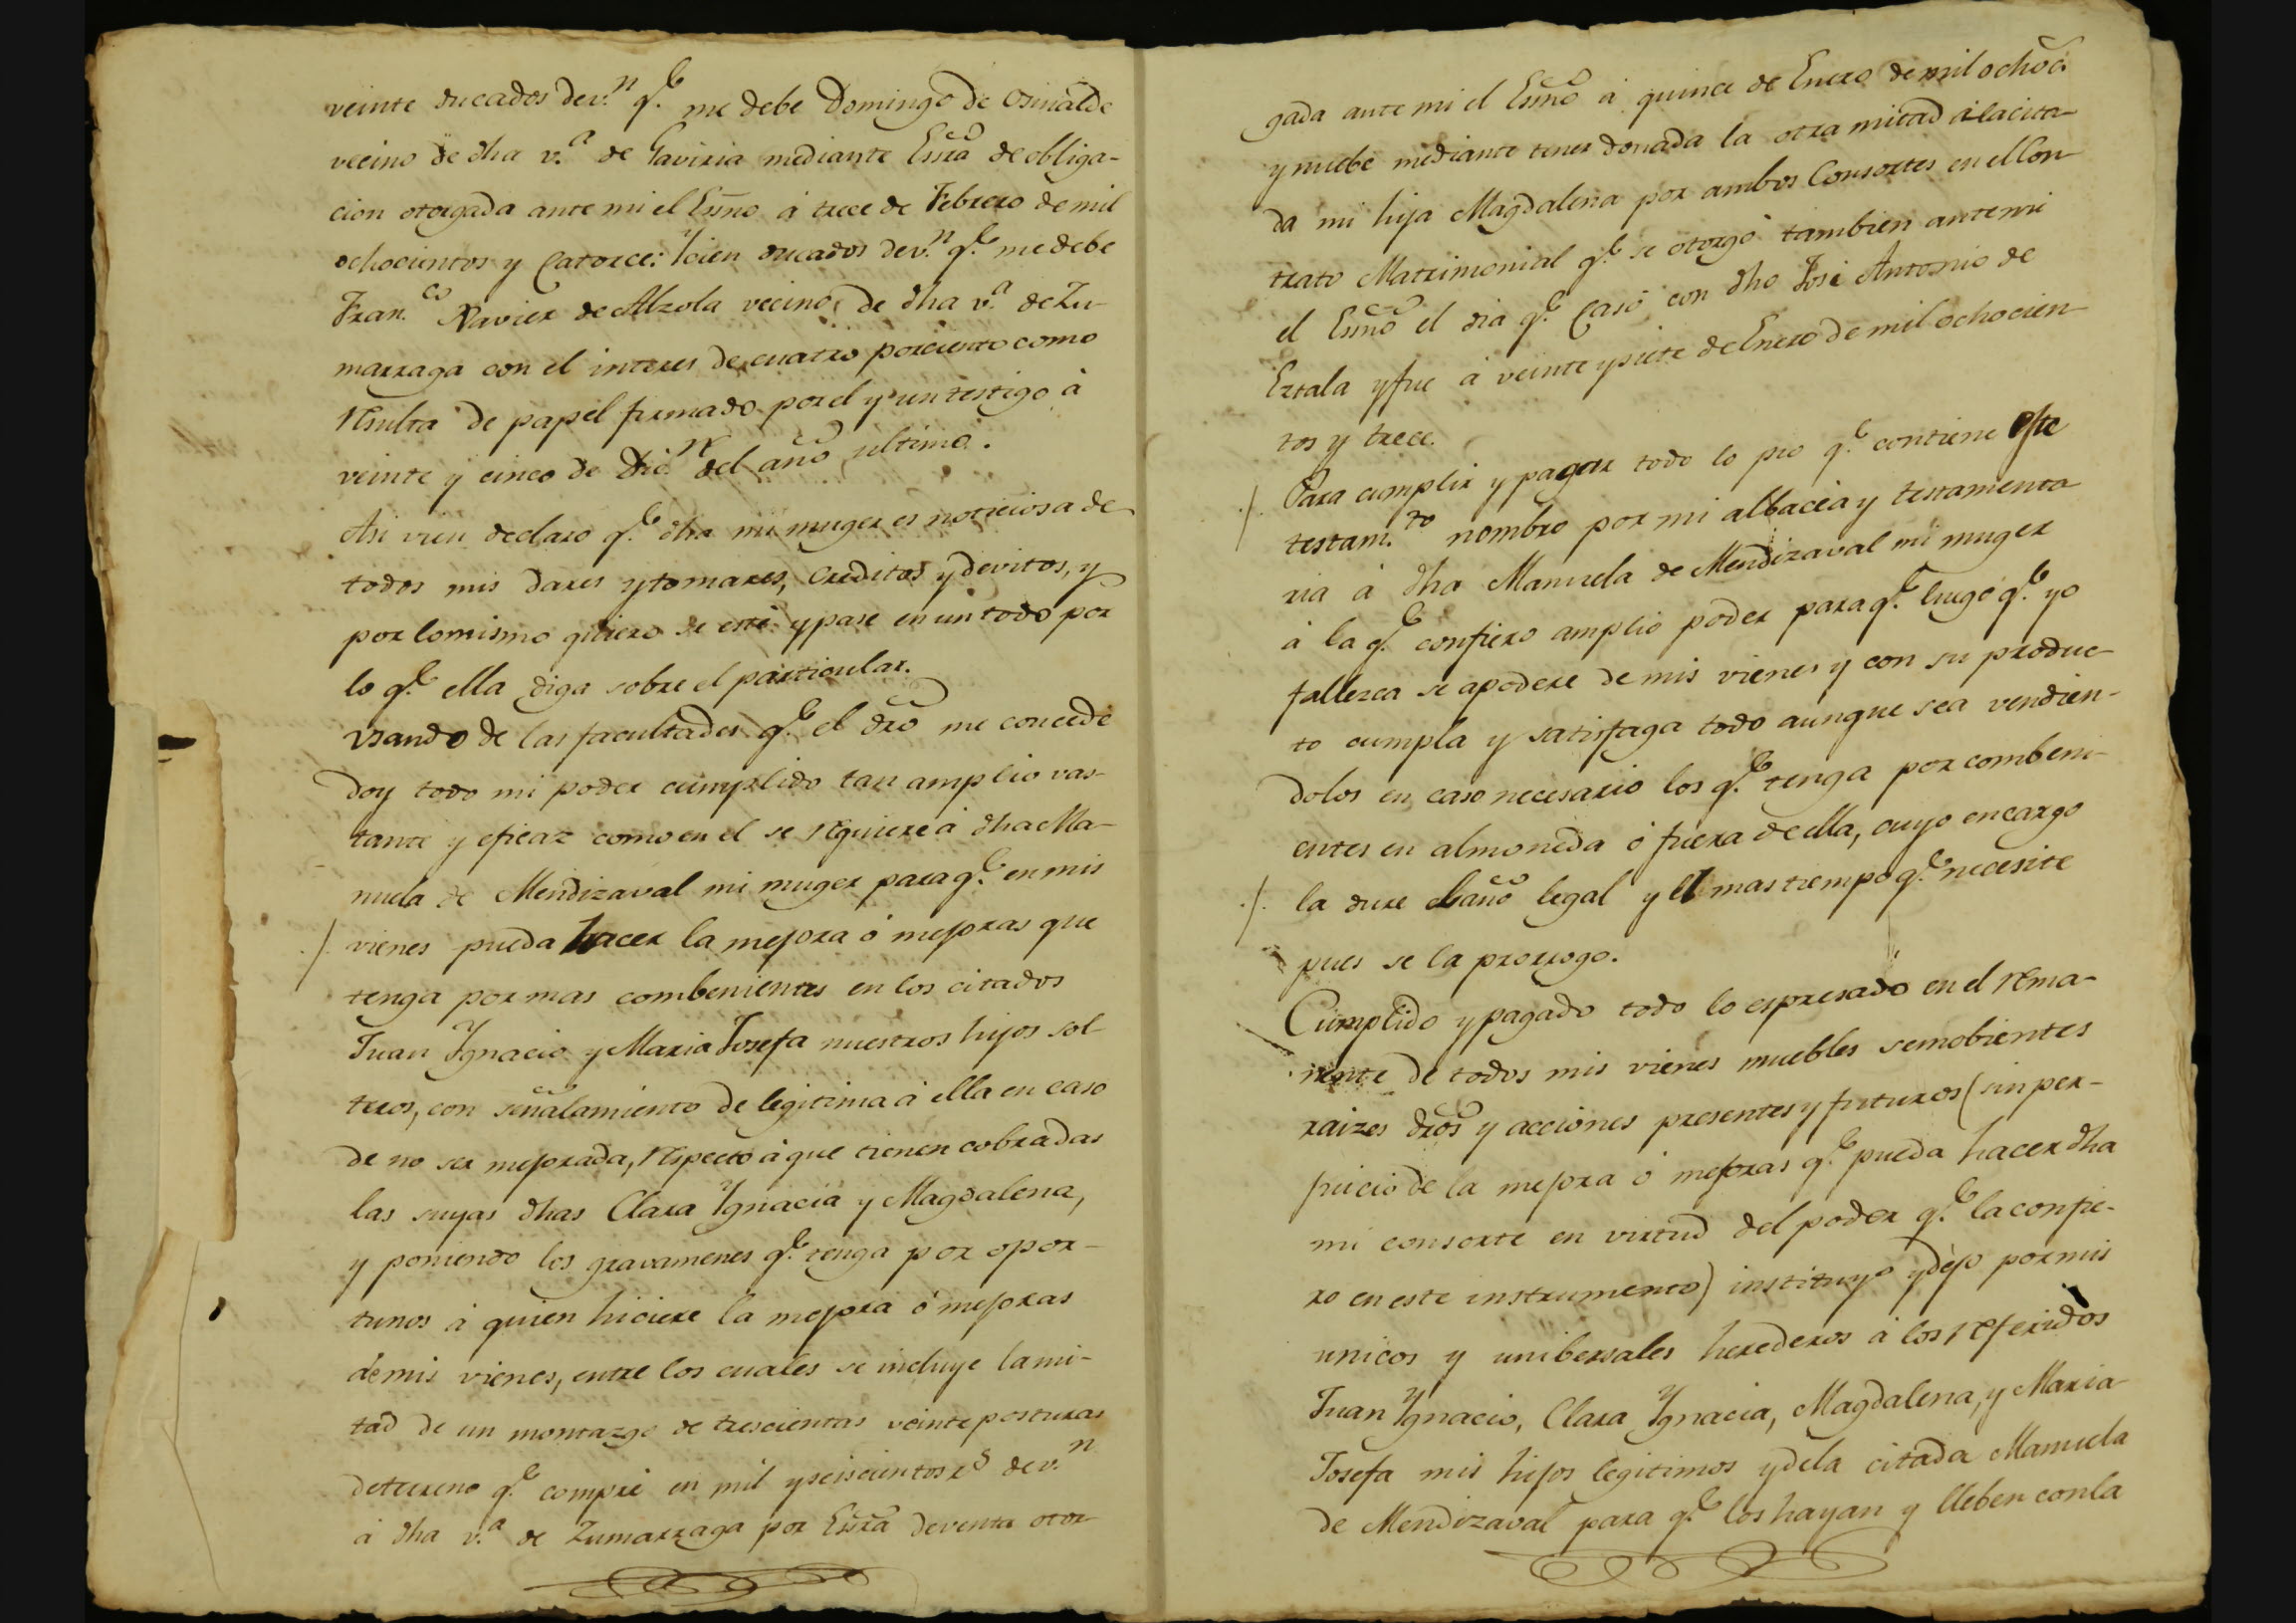 veinte ducados de v.n q.e me debe Domingo de Osinalde
vecino de dha v.a de Gaviria mediante Essra de obliga-
cion otorgada ante mi el Essno á trece de Febrero de mil
ochocientos y Catorce: Ycien ducados de v.n q.e me debe
Fran.co Xavier de Alzola vecino de dha v.a de Zu-
marraga con el interes de cuatro por ciento como
resulta de papel firmado por el y un testigo á
veinte y cinco de Dic.re del año ultimo.
Asi vien declaro q.e dha mi muger es noticiosa de
todos mis dares y tomares, creditos y devitos, y
por lo mismo quiero se esté y pase en un todo por
lo q.e ella diga sobre el particular.
Vsando de las facultades q.e el dro me concede
doy todo mi poder cumplido tan amplio vas-
tante y eficaz como en el se requiere á dha Ma-
nuela de Mendizaval mi muger para q.e en mis
./. vienes pueda hacer la mejora ó mejoras que
tenga por mas combenientes en los citados
Juan Ygnacio y Maria Josefa nuestros hijos sol-
teros, con señalamiento de legitima á ella en caso
de no ser mejorada, respecto á que tienen cobradas
las suyas dhas Clara Ygnacia y Magdalena,
y poniendo los gravamenes q.e tenga por opor-
tunos á quien hiciere la mejora ó mejoras
de mis vienes, entre los cuales se incluye la mi-
tad de un montazgo de trescientas veinte posturas
de terreno q.e compré en mil y seiscientos r.s de v.n
á dha v.a de Zumarraga por Essra de venta otor-
gada ante mi el Essno á quince de Enero de mil ochoc.s
y nuebe mediante tener donada la otra mitad á la cita-
da mi hija Magdalena por ambos Consortes en el Con-
trato Matrimonial q.e se otorgó tambien ante mi
el Essno el dia q.e Casó con dho José Antonio de
Eztala y fue á veinte y siete de Enero de mil ochocien-
tos y trece.
./. Para cumplir y pagar todo lo pio q.e contiene este
testam.to nombro por mi albacéa y testamenta
ria á dha Manuela de Mendizaval mi muger
á la q.e confiero amplio poder para q.e luego q.e yo
fallezca se apodere de mis vienes y con su produc-
to cumpla y satisfaga todo aunque sea vendien-
dolos en caso necesario los q.e tenga por combeni-
entes en almoneda ó fuera de ella, cuyo encargo
./. la dure el año legal y el mas tiempo q.e necesite
pues se la prorrogo.
Cumplido y pagado todo lo espresado en el rema-
nente de todos mis vienes muebles semobientes
raizes dros y acciones presentes y futuros (sin per-
juicio de la mejora ó mejoras q.e pueda hacer dha
mi consorte en virtud del poder q.e la confie-
ro en este instrumento) instituyo y dejo por mis
unicos y unibersales herederos á los referidos
Juan Ygnacio, Clara Ygnacia, Magdalena, y Maria
Josefa mis hijos legitimos y de la citada Manuela
de Mendizaval para q.e los hayan y lleben con la